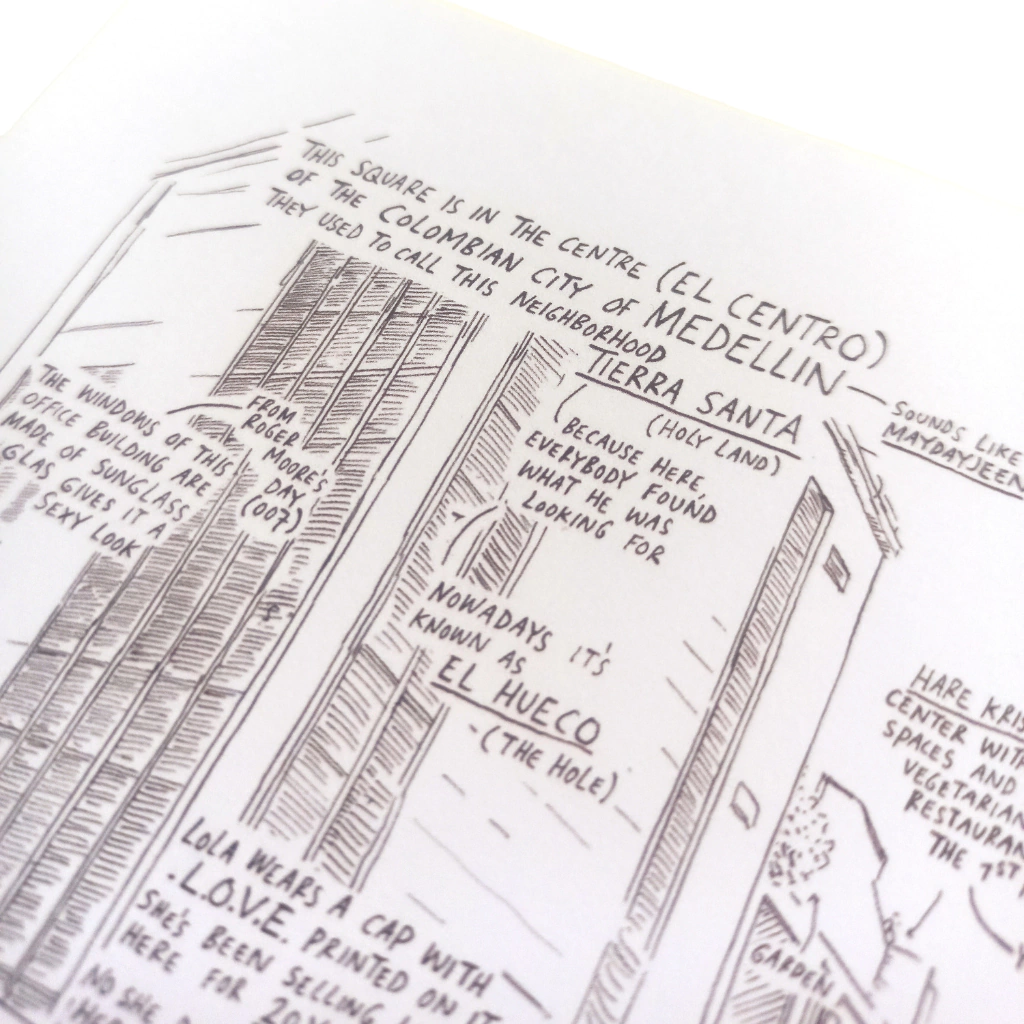 THIS SQUARE IS IN THE CENTRE (EL CENTRO)
OF THE COLOMBIAN CITY OF MEDELLIN—
THEY USED TO CALL THIS NEIGHBORHOOD
TIERRA SANTA
(HOLY LAND)
(BECAUSE HERE,
EVERYBODY FOUND
WHAT HE WAS
LOOKING FOR
SOUNDS LIKE
MAYDAYJEEN
THE WINDOWS OF THIS
OFFICE BUILDING ARE
MADE OF SUNGLASS
GLAS GIVES IT A
SEXY LOOK
FROM
ROGER
MOORE'S
DAY
(007)
NOWADAYS IT'S
KNOWN AS
EL HUECO
-(THE HOLE)
HARE KRIS
CENTER WITH
SPACES AND
VEGETARIAN
RESTAURAN
THE 1ST
GARDEN
LOLA WEARS A CAP WITH
.L.O.V.E. PRINTED ON IT
SHE'S BEEN SELLING
HERE FOR 20
NO SHE